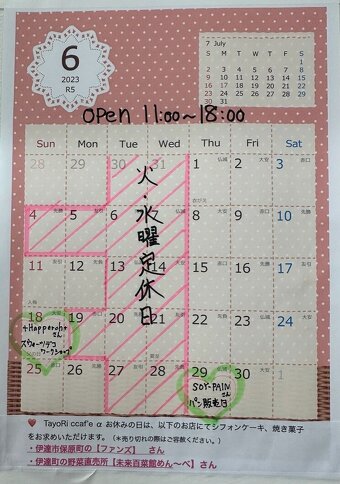 6
2023
R5
7 July
S M T W T F S
1
2 3 4 5 6 7 8
9 10 11 12 13 14 15
16 17 18 19 20 21 22
23 24 25 26 27 28 29
30 31
open 11:00~18:00
Sun Mon Tue Wed Thu Fri Sat
28 29 30 31 1 2 3
4 5 6 7 8 9 10
11 12 13 14 15 16 17
18 19 20 21 22 23 24
25 26 27 28 29 30 1
火・水曜定休日
さん
スウィーツデコ
ワークショップ
SOY-PAIN
さん
パン販売日
♥ TayoRi ccaf'e α お休みの日は、以下のお店にてシフォンケーキ、焼き菓子
をお求めいただけます。（＊売り切れの際はご容赦ください。）
・伊達市保原町の【ファンズ】 さん
・伊達町の野菜直売所【未来百菜館めん～べ】さん